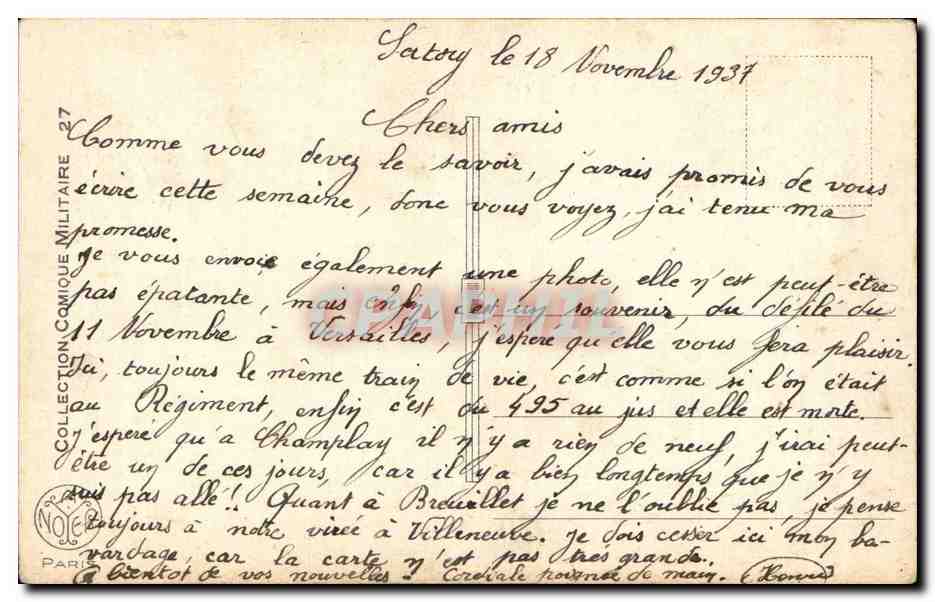 Satory le 18 Novembre 1937
Chers amis
Comme vous devez le savoir, j'avais promis de vous
écrire cette semaine, donc vous voyez, j'ai tenu ma
promesse.
Je vous envoie également une photo, elle n'est peut-être
pas épatante, mais enfin c'est un souvenir, du défilé du
11 Novembre à Versailles, j'esperé qu'elle vous fera plaisir.
Ici, toujours le même train de vie, c'est comme si l'on était
au Régiment, enfin c'est du 495 au jus et elle est morte.
j'esperé qu'a Champlay il n'y a rien de neuf, j'irai peut-
être un de ces jours, car il y a bien longtemps que je n'y
suis pas allé!! Quant à Breuillet je ne l'oublie pas je pense
toujours à notre virée à Villeneuve. Je dois cesser ici mon ba-
vardage, car la carte n'est pas très grande.
A bientot de vos nouvelles. Cordiale poignée de main. Henri
COLLECTION COMIQUE MILITAIRE 27
NOYER
PARIS
CPAPHIL